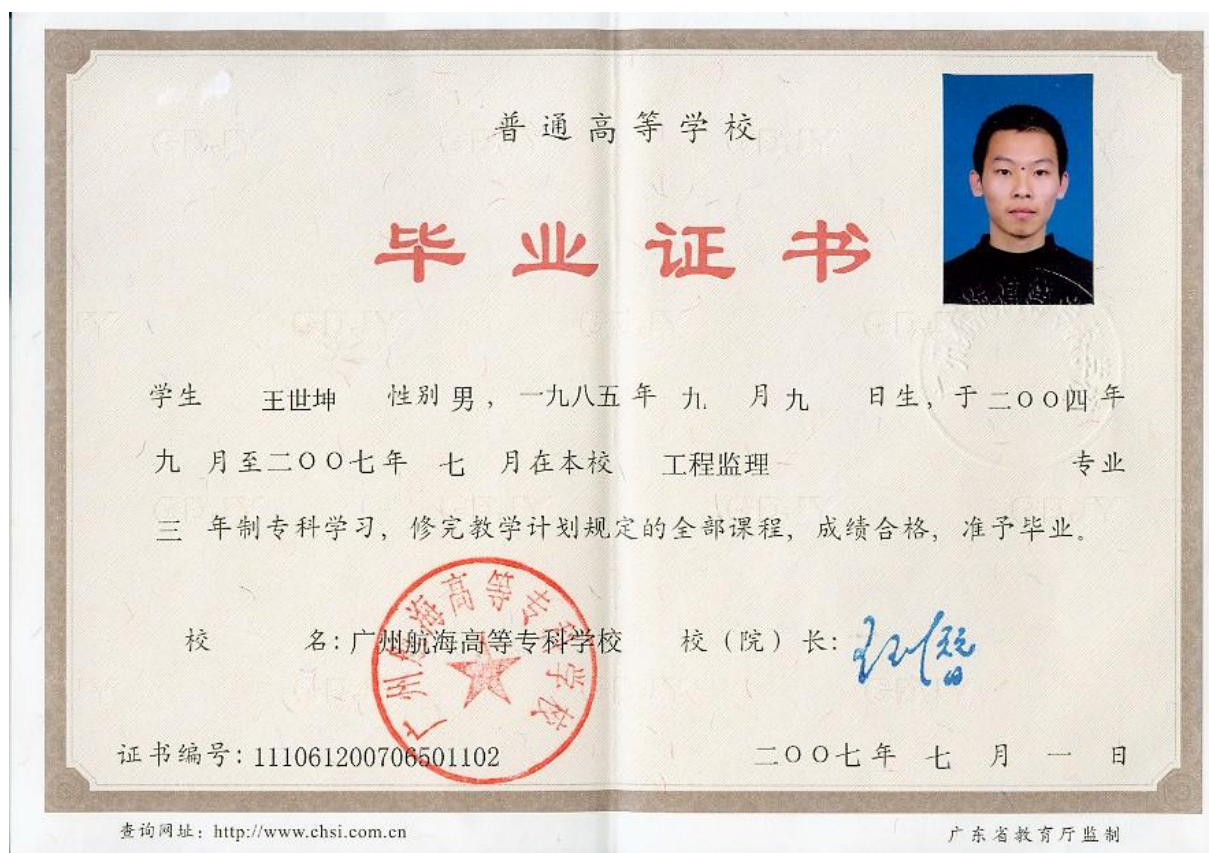 普通高等学校
毕业证书
学生 王世坤 性别 男，一九八五年 九 月 九 日生，于二〇〇四年
九 月至二〇〇七年 七 月在本校 工程监理 专业
三 年制专科学习，修完教学计划规定的全部课程，成绩合格，准予毕业。
校 名：广州航海高等专科学校 校（院）长：
广州航海高等专科学校
证书编号：111061200706501102 二〇〇七年 七 月 一 日
查询网址：http://www.chsi.com.cn 广东省教育厅监制